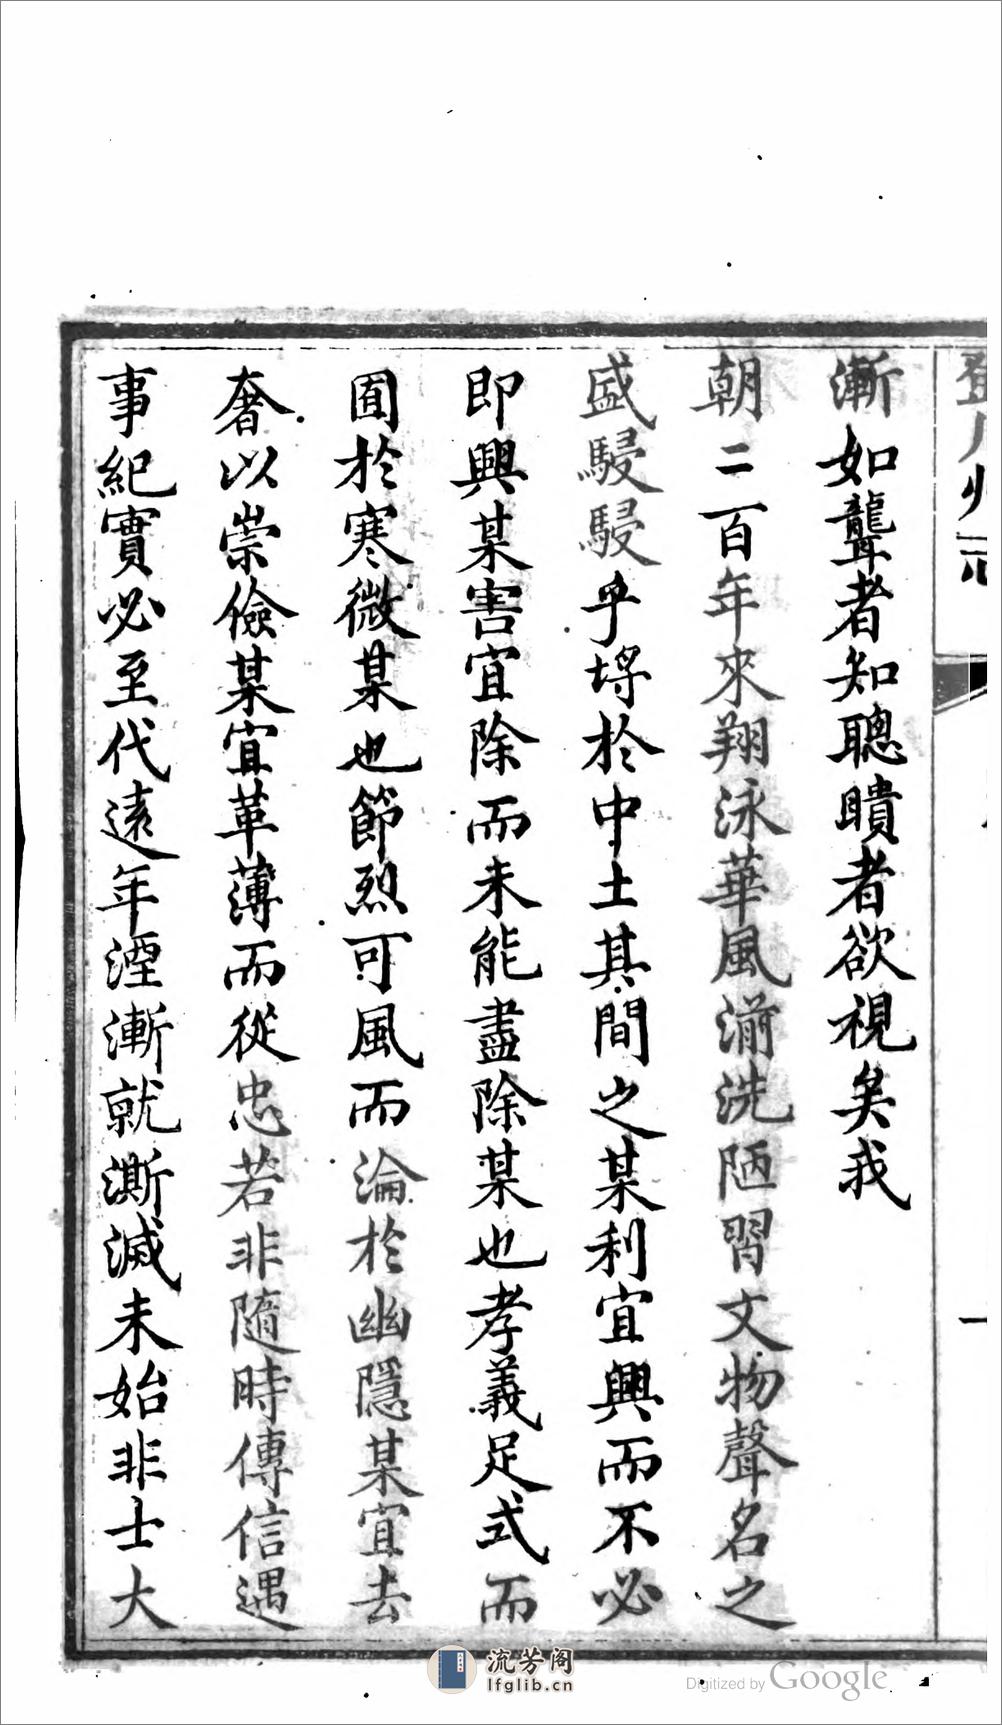 州志
漸如聾者知聰瞶者欲視矣我
朝二百年來翔泳華風湔洗陋習文物聲名之
盛駸駸乎埒於中土其間之某利宜興而不必
即興某害宜除而未能盡除某也孝義足式而
囿於寒微某也節烈可風而淪於幽隱某宜去
奢以崇儉某宜革薄而從忠若非隨時傳信遇
事紀實必至代遠年湮漸就澌滅未始非士大
流芳阁
lfglib.cn
Digitized by Google